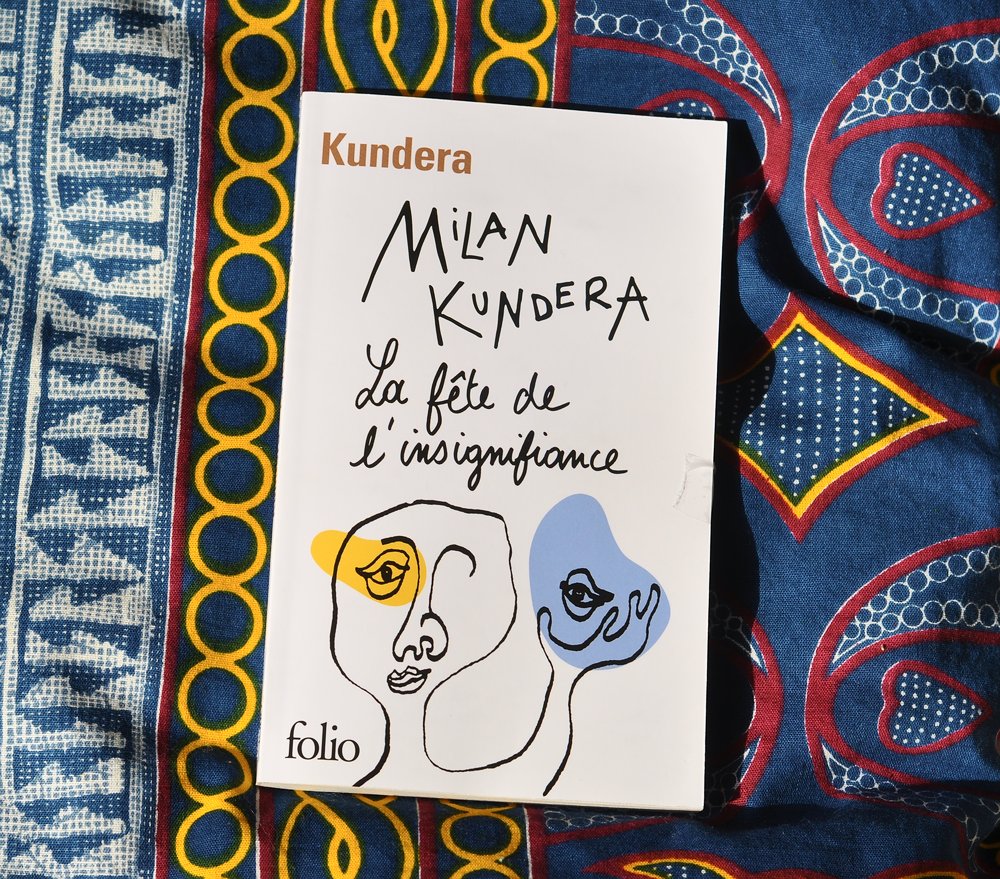 Kundera
MiLAN
KUNDERA
La fête de
l'insignifiance
folio